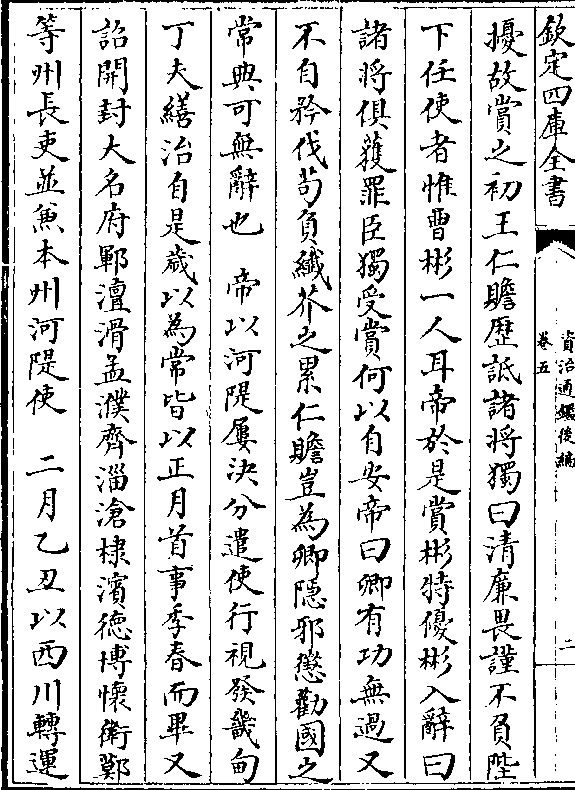 欽定四庫全書
資治通鑑後編
卷五
二
擾故賞之初王仁贍歴詆諸將獨曰清廉畏謹不負陛
下任使者惟曹彬一人耳帝於是賞彬特優彬入辭曰
諸將俱獲罪臣獨受賞何以自安帝曰卿有功無過又
不自矜伐茍負纖芥之累仁贍豈為卿隱邪懲勸國之
常典可無辭也　帝以河隄屢決分遣使行視發畿甸
丁夫繕治自是歲以為常皆以正月首事季春而畢又
詔開封大名府鄆澶滑孟濮齊淄滄棣濱德博懷衛鄭
等州長吏並兼本州河隄使　二月乙丑以西川轉運